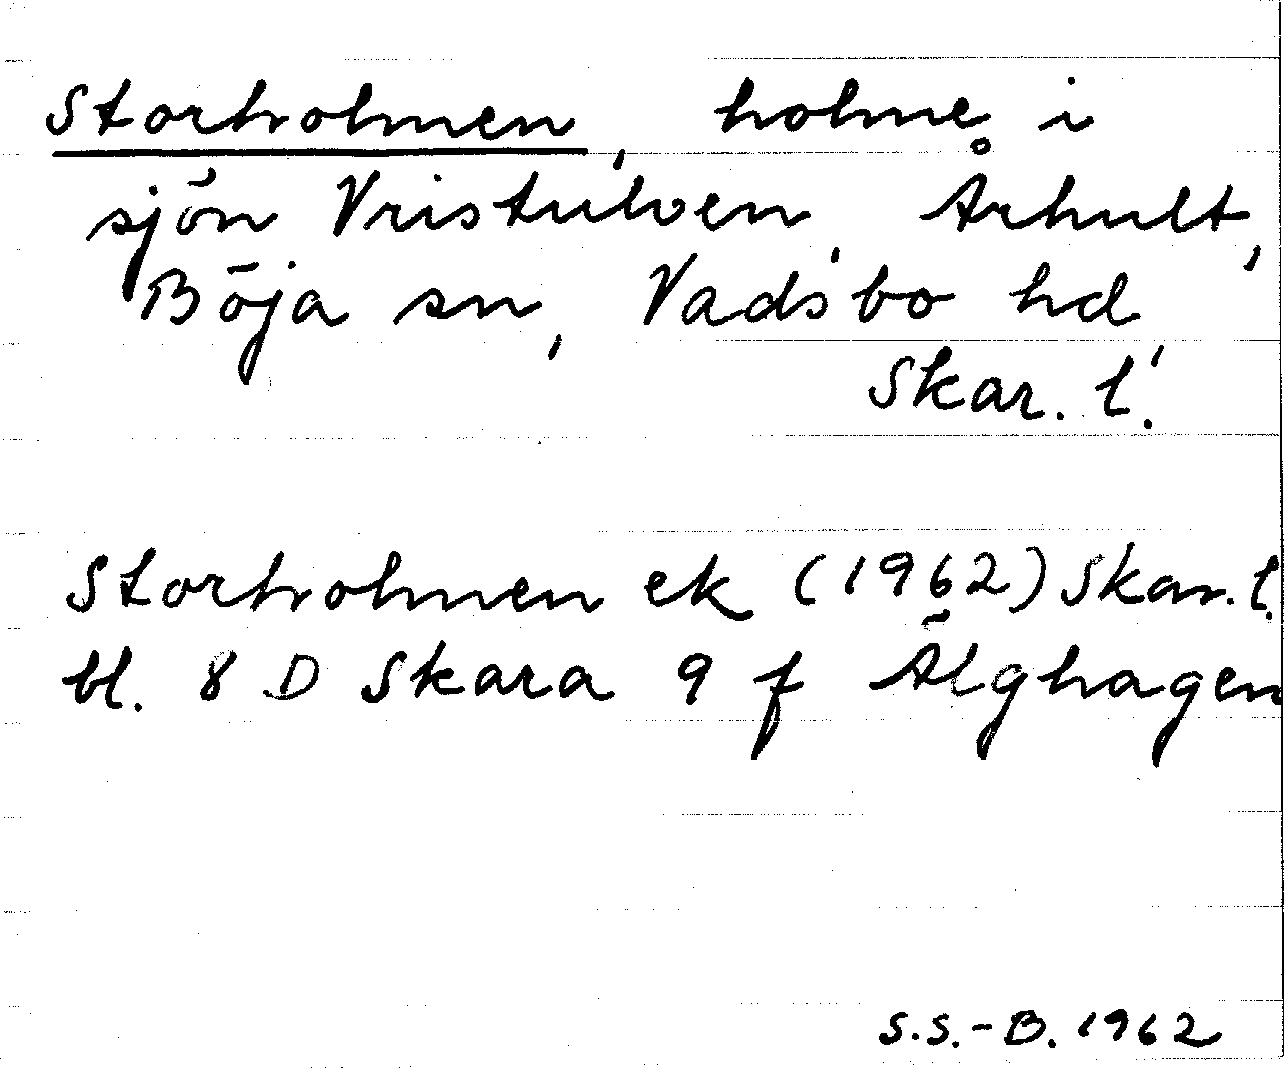 Storholmen, holme i
sjön Vristulven, Århult,
Böja sn, Vadsbo hd,
Skar. l.
Storholmen ek (1962) Skar. l.
bl. 8 D Skara 9 f Älghagen
S.S.-B. 1962